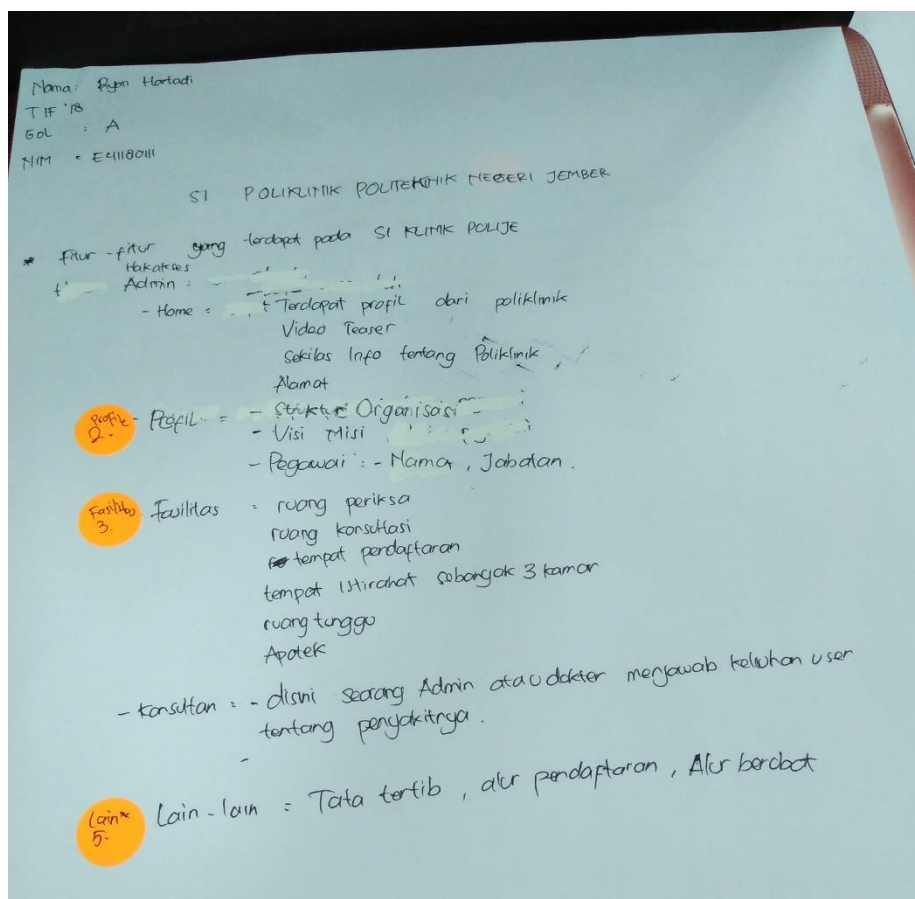 Nama: Ryan Hartadi
TIF '18
GOL : A
NIM : E41180111
SI POLIKLINIK POLITEKNIK NEGERI JEMBER
* Fitur-fitur yang terdapat pada SI KLINIK POLIJE
Hakakses
Admin :
- Home = Terdapat profil dari poliklinik
Video Teaser
Sekilas Info tentang Poliklinik
Alamat
Profil 2. - Profil = - Struktur Organisasi
- Visi Misi
- Pegawai : - Nama, Jabatan.
Fasilitas 3. Fasilitas : ruang periksa
ruang konsultasi
tempat pendaftaran
tempat istirahat sebanyak 3 kamar
ruang tunggu
Apotek
- Konsultan : - disini seorang Admin atau dokter menjawab keluhan user
tentang penyakitnya.
-
Lain" 5. Lain-lain = Tata tertib, alur pendaftaran, Alur berobat